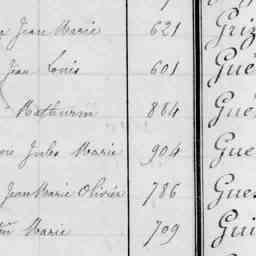 Jean Marie 621 Griz
Jean Louis 601 Gué
Mathurin 884 Gué
Jules Marie 904 Gue
Jean Marie Olivier 786 Gues
Marie 709 Gui